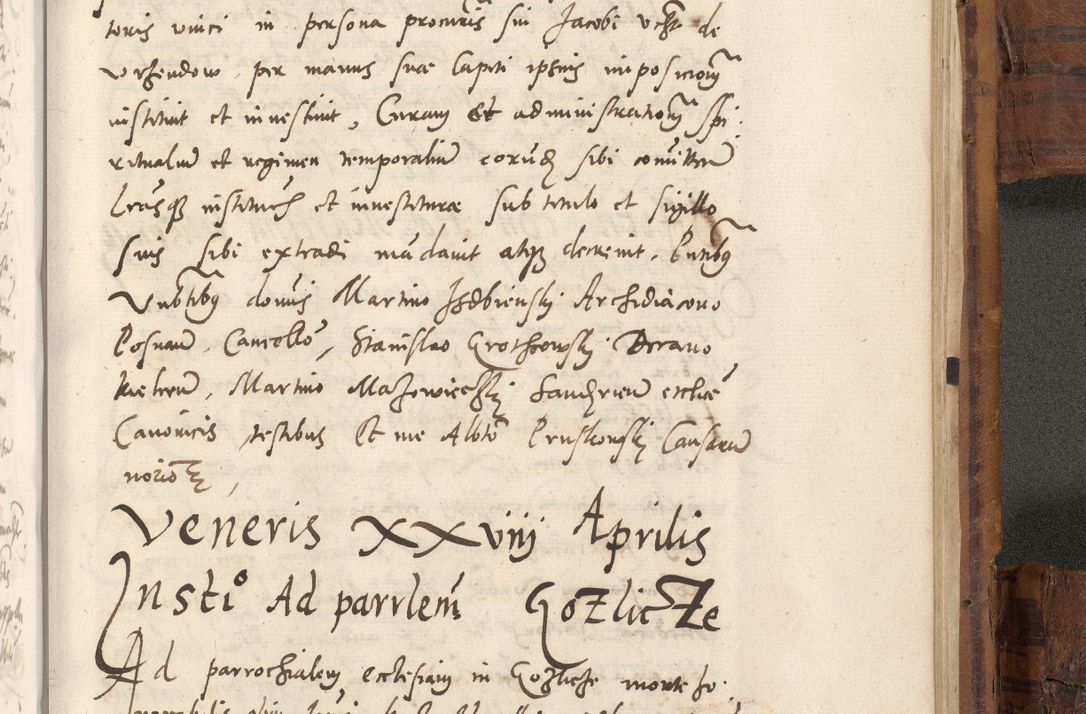 toris vinci in persona procuris sui Jacobi
Vrhendow per manus suæ Capiti ipsius impositionem
instituit et investiuit, Curam Et administrationem spi
ritualium et regimen temporalium eorundem sibi comitten
Lrasque institucionis et inuestituræ sub titulo et sigillo
suis sibi extradi mandauit atque decreuit. Pntibus
Vnblibus domis Martino Izdbienski Archidiacono
Posnan. Cancello, Stanislao Grothkowskj Decano
Kielcen, Martino Mazowieczkj Sandzmen ecclie
Canonicis testibus Et me Albto Pruskowskj Causarum
notio
Veneris XXviij Aprilis
Insto Ad parrlem GoZlicZe
Ad parrochialem ecclesiam in Gozlicze morte ho.